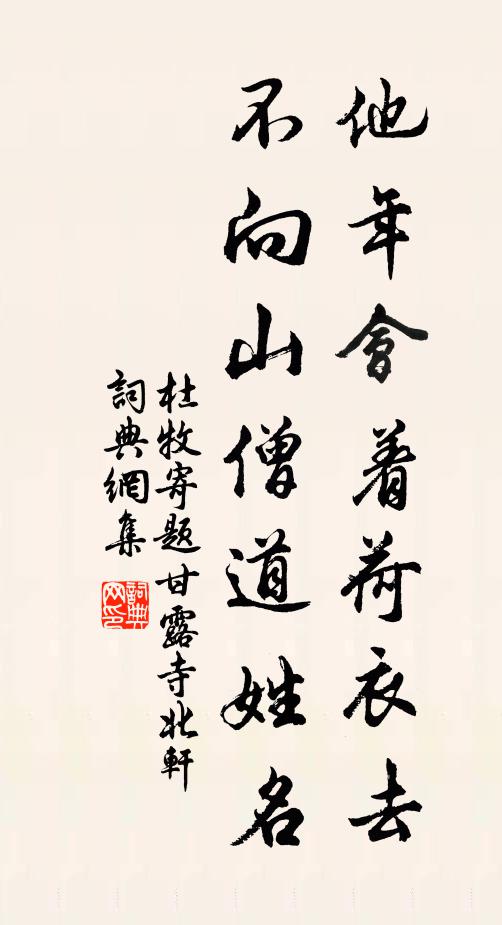 他年會着荷衣去
不向山僧道姓名
杜牧寄題甘露寺北軒
詞典網集
詞典
网印